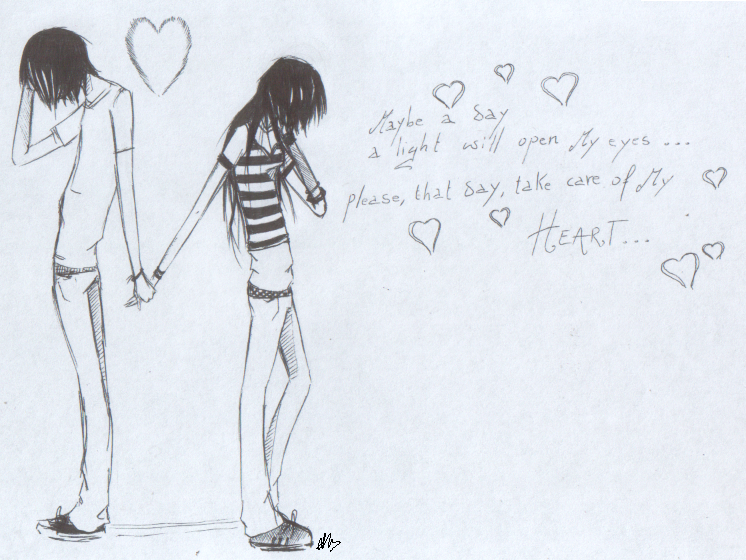 Maybe a day
a light will open My eyes ...
please, that day, take care of My
HEART...